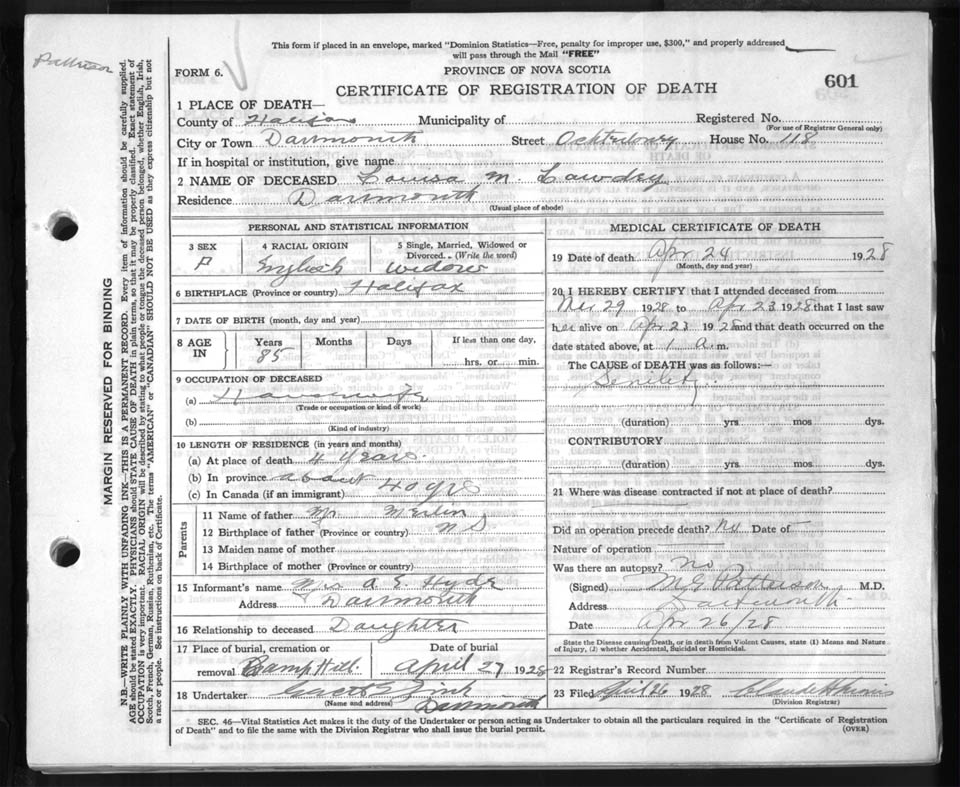 This form if placed in an envelope, marked "Dominion Statistics—Free, penalty for improper use, $300," and properly addressed
will pass through the Mail "FREE"
Patterson
FORM 6.
PROVINCE OF NOVA SCOTIA
CERTIFICATE OF REGISTRATION OF DEATH
601
1 PLACE OF DEATH—
County of Halifax Municipality of Registered No.
(For use of Registrar General only)
City or Town Dartmouth Street Ochterloney House No. 118
If in hospital or institution, give name
2 NAME OF DECEASED Louisa M. Lawdey
Residence Dartmouth
(Usual place of abode)
PERSONAL AND STATISTICAL INFORMATION
3 SEX 4 RACIAL ORIGIN 5 Single, Married, Widowed or
Divorced. (Write the word)
F English widow
6 BIRTHPLACE (Province or country) Halifax
7 DATE OF BIRTH (month, day and year)
8 AGE IN Years Months Days If less than one day,
85 hrs. or min.
9 OCCUPATION OF DECEASED
(a) Housewife
(Trade or occupation or kind of work)
(b)
(Kind of industry)
10 LENGTH OF RESIDENCE (in years and months)
(a) At place of death 4 years
(b) In province about 40 yrs
(c) In Canada (if an immigrant)
Parents
11 Name of father Mr. Merlin
12 Birthplace of father (Province or country) N S
13 Maiden name of mother
14 Birthplace of mother (Province or country)
15 Informant's name Mrs A. E. Hyde
Address Dartmouth
16 Relationship to deceased Daughter
17 Place of burial, cremation or Date of burial
removal Camp Hill April 27 1928
18 Undertaker Zink
(Name and address) Dartmouth
MEDICAL CERTIFICATE OF DEATH
19 Date of death Apr 24 1928
(Month, day and year)
20 I HEREBY CERTIFY that I attended deceased from
29 1928 to Apr 23 1928 that I last saw
her alive on Apr 23 1928 and that death occurred on the
date stated above, at 1 a. m.
The CAUSE of DEATH was as follows:—
Senility.
(duration) yrs mos dys.
CONTRIBUTORY
(duration) yrs. mos dys.
21 Where was disease contracted if not at place of death?
Did an operation precede death? No Date of
Nature of operation
Was there an autopsy? No
(Signed) M G Patterson M.D.
Address Dartmouth
Date Apr 26/28
State the Disease causing Death, or in death from Violent Causes, state (1) Means and Nature
of Injury, (2) whether Accidental, Suicidal or Homicidal.
22 Registrar's Record Number
23 Filed April 26 1928
(Division Registrar)
SEC. 46—Vital Statistics Act makes it the duty of the Undertaker or person acting as Undertaker to obtain all the particulars required in the "Certificate of Registration
of Death" and to file the same with the Division Registrar who shall issue the burial permit.
(OVER)
MARGIN RESERVED FOR BINDING
N.B.—WRITE PLAINLY WITH UNFADING INK—THIS IS A PERMANENT RECORD. Every item of information should be carefully supplied.
AGE should be stated EXACTLY. PHYSICIANS should STATE CAUSE OF DEATH in plain terms, so that it may be properly classified. Exact statement of
OCCUPATION is very important. RACIAL ORIGIN will be described by stating to what people or tongue the deceased person belonged, whether English, Irish,
Scotch, French, German, Russian, Ruthenian, etc. The terms "AMERICAN" or "CANADIAN" SHOULD NOT BE USED as they express citizenship but not
a race or people. See instructions on back of Certificate.